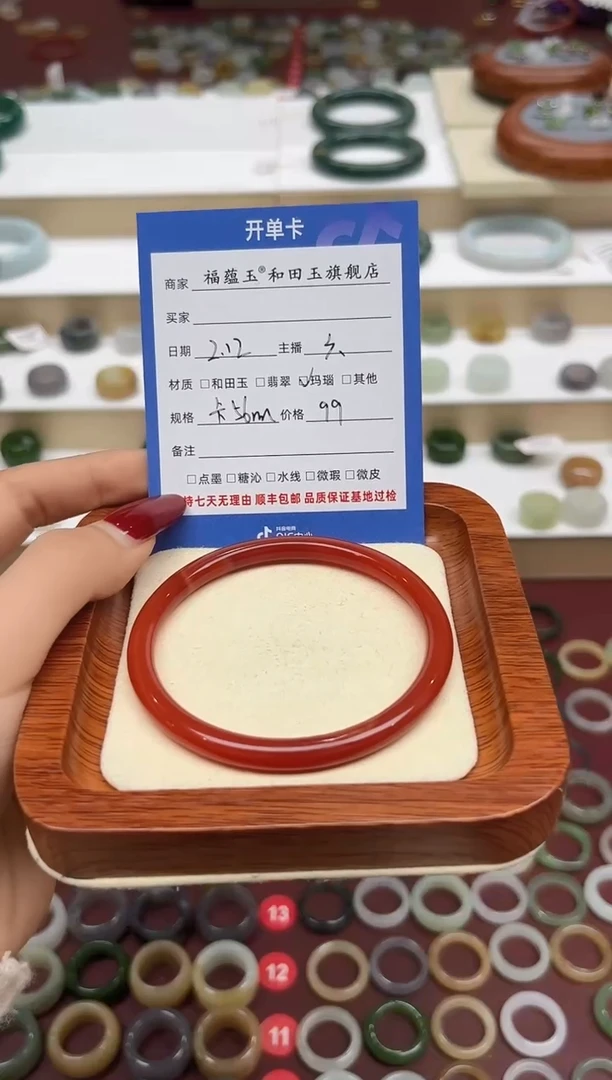 开单卡
商家 福蕴玉®和田玉旗舰店
买家
日期 2.12 主播
材质 □和田玉 □翡翠 ☑玛瑙 □其他
规格 卡56mm 价格 99
备注
□点墨 □糖沁 □水线 □微瑕 □微皮
持七天无理由 顺丰包邮 品质保证基地过检
抖音电商
13
12
11